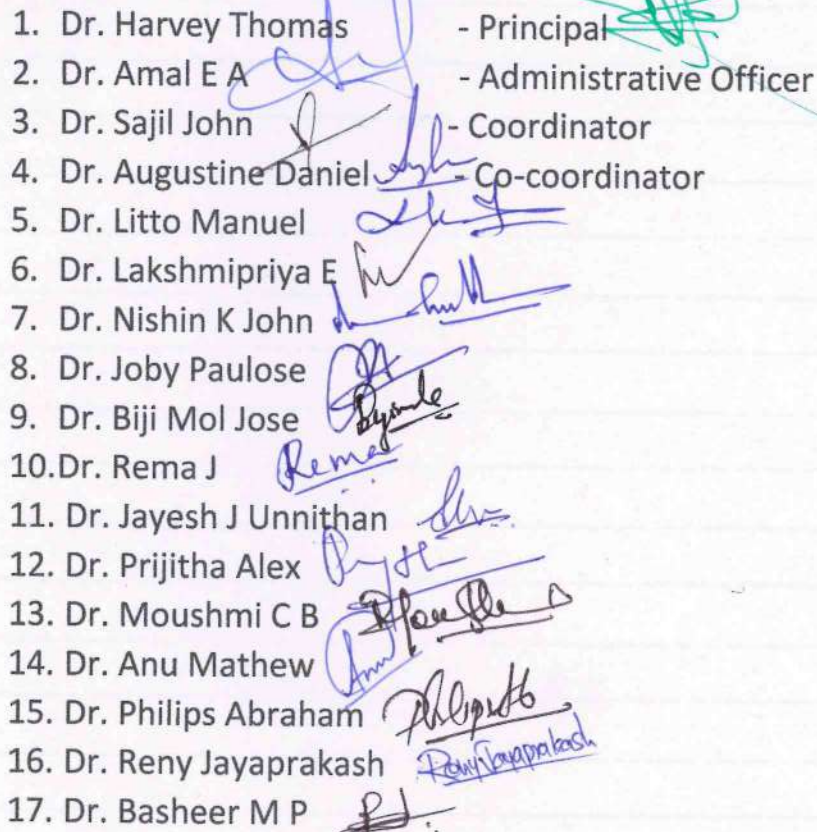 1. Dr. Harvey Thomas - Principal
2. Dr. Amal E A - Administrative Officer
3. Dr. Sajil John - Coordinator
4. Dr. Augustine Daniel - Co-coordinator
5. Dr. Litto Manuel
6. Dr. Lakshmipriya E
7. Dr. Nishin K John
8. Dr. Joby Paulose
9. Dr. Biji Mol Jose
10.Dr. Rema J Rema
11. Dr. Jayesh J Unnithan
12. Dr. Prijitha Alex
13. Dr. Moushmi C B
14. Dr. Anu Mathew Anu
15. Dr. Philips Abraham
16. Dr. Reny Jayaprakash Reny Jayaprakash
17. Dr. Basheer M P